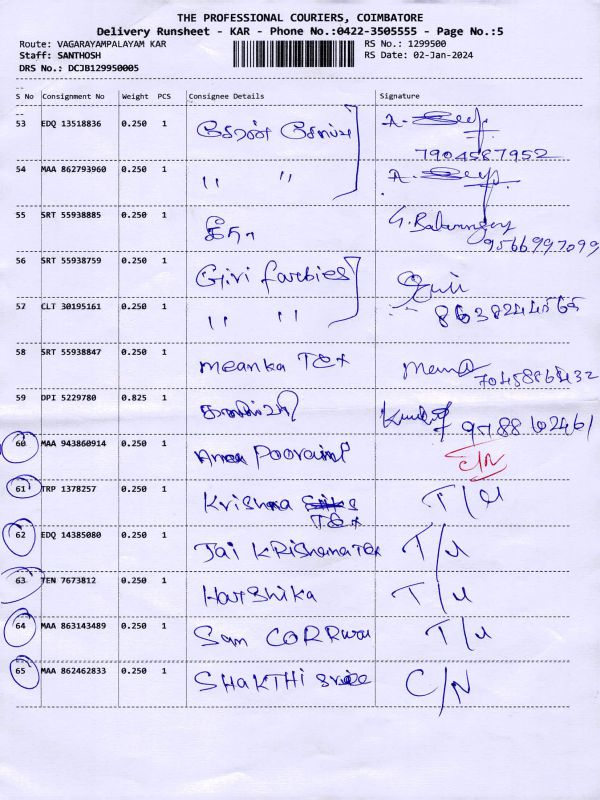 THE PROFESSIONAL COURIERS, COIMBATORE
Delivery Runsheet - KAR - Phone No.:0422-3505555 - Page No.:5
Route: VAGARAYAMPALAYAM KAR RS No.: 1299500
Staff: SANTHOSH RS Date: 02-Jan-2024
DRS No.: DCJB129950005
S No Consignment No Weight PCS Consignee Details Signature
53 EDQ 13518836 0.250 1
7904587952
54 MAA 862793960 0.250 1 " "
55 SRT 55938885 0.250 1
9566997099
56 SRT 55938759 0.250 1 Giri
57 CLT 30195161 0.250 1 " "
58 SRT 55938847 0.250 1 meanka Tex
59 DPI 5229780 0.825 1
60 MAA 943860914 0.250 1 C/N
61 TRP 1378257 0.250 1 Krishna Tex T/U
62 EDQ 14385080 0.250 1 Jai KRishnaTex T/U
63 TEN 7673812 0.250 1 Harshika T/U
64 MAA 863143489 0.250 1 Sam T/U
65 MAA 862462833 0.250 1 SHAKTHI sree C/N